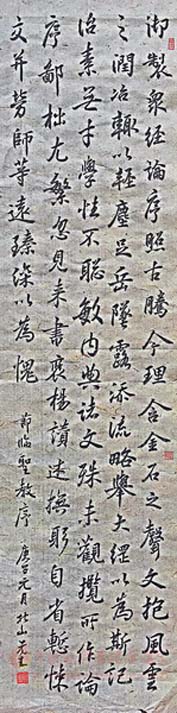 御製眾經論序照古騰今理含金石之聲文抱風雲
之潤治輒以輕塵足岳墜露添流略舉大綱以為斯記
治素无才學性不聰敏內典諸文殊未觀攬所作論
序鄙拙尤繁忽見來書褒揚讚述撫躬自省慙悚
交并勞師等遠臻深以為愧
節臨聖教序 元月北山